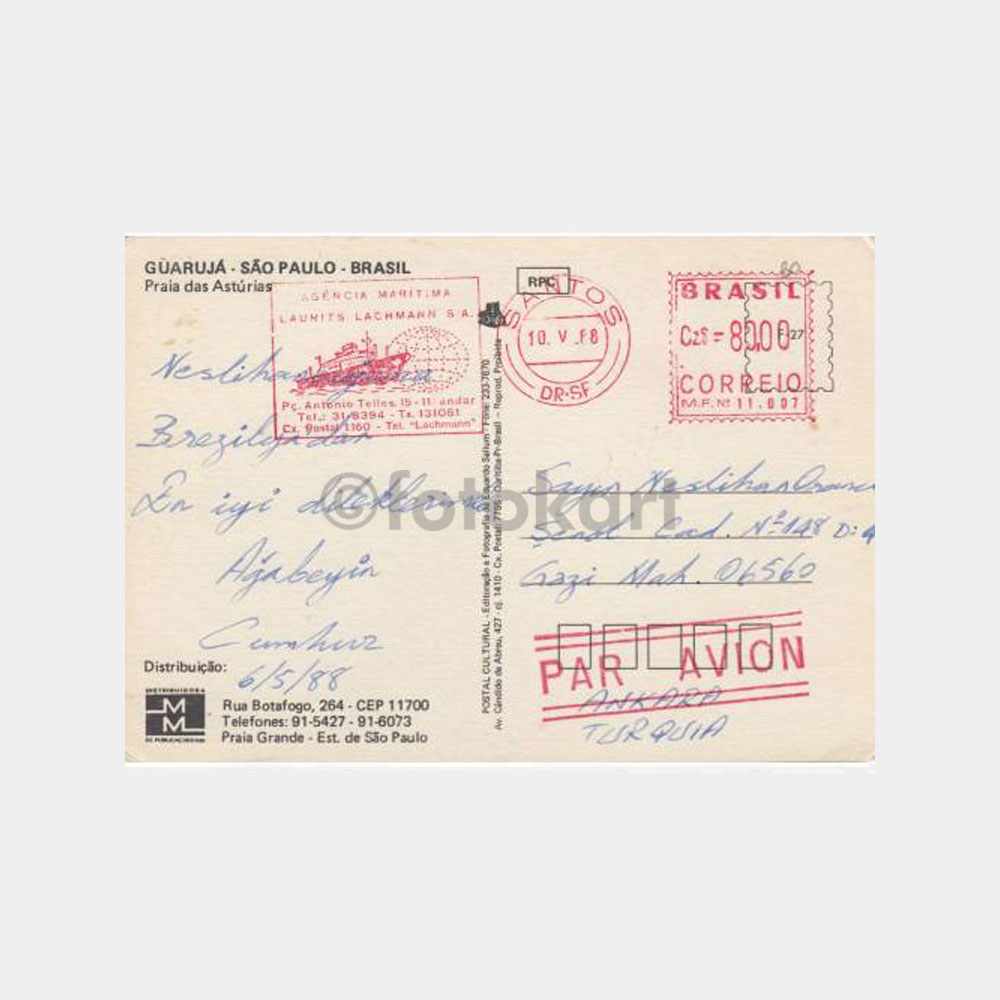 GUARUJÁ - SÃO PAULO - BRASIL
Praia das Astúrias
AGÊNCIA MARITIMA
LAURITS LACHMANN S/A.
Pç. Antonio Telles, 15 - 11. andar
Tel.: 31-8394 - Tx. 131061
Cx. Postal 1160 - Tel. "Lachmann"
RPC
SANTOS
10. V .88
DR-SF
BRASIL
Cz$ = 80,00
F-27
CORREIO
M.F. Nº 11.007
80
Neslihan
Brezilyadan
En iyi dileklerimle
Ağabeyin
Cumhur
6/5/88
Sayın Neslihan
Şenol Cad. Nº 148 D:
Gazi Mah. 06560
PAR AVION
ANKARA
TURQUIA
Distribuição:
DISTRIBUIDORA
MM
DE PUBLICAÇÕES
Rua Botafogo, 264 - CEP 11700
Telefones: 91-5427 - 91-6073
Praia Grande - Est. de São Paulo
POSTAL CULTURAL - Editoração e Fotografia de Eduardo Sallum - Fone: 233-7670
Av. Cândido de Abreu, 427 - cj. 1410 - Cx. Postal: 7755 - Curitiba-Pr-Brasil - Reprod. Proibida
©fotokart